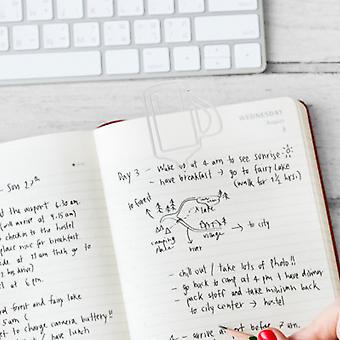 WEDNESDAY
August
3
Sun 27th
the airport 6.30 am
will arrive at 9.15 am)
check in to the hostel
place nice for breakfast
at 11 am then go to
hrs drive)
at 6 pm.
forest and fairy lake
5 am
to charge camera battery!!
/ have lunch
Day 3 – Wake up at 4 am to see sunrise
– have breakfast → go to fairy lake
(walk for 1 1/2 hrs)
to forest
lake
camping place
river
village
→ to city
– chill out / take lots of photo!!
– go back to camp at 4 pm & have dinner
– pack stuff and take minivan back
to city center → hostel
– arrive at before 7 am